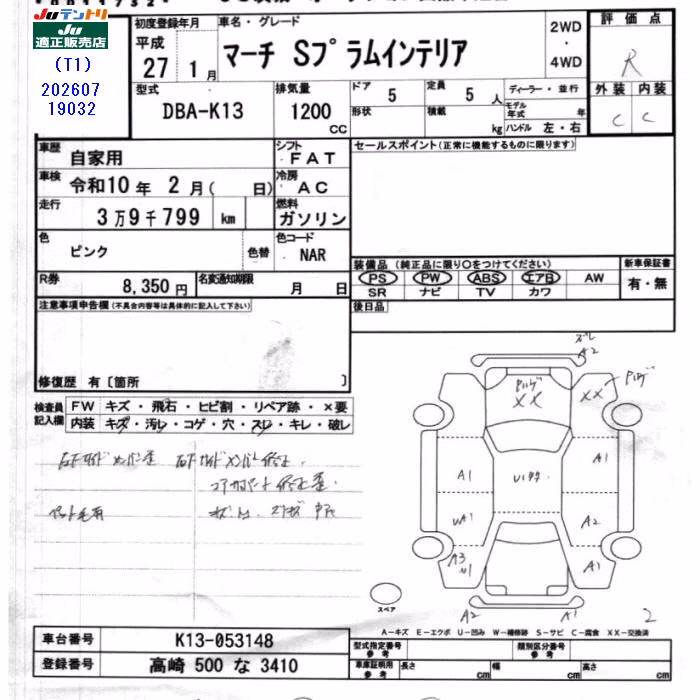 Juテントリ
JU適正販売店
(T1)
202607
19032
初度登録年月
平成
27 1月
車名・グレード
マーチ Sプラムインテリア
2WD
・
4WD
評価点
R
外装 内装
C C
型式
DBA-K13
排気量
1200
CC
ドア 5
形状
定員 5 人
積載 kg
ディーラー・並行
モデル年式 年
ハンドル 左・右
車歴 自家用
シフト FAT
車検 令和10年 2月( 日)
冷房 AC
走行 3万9千799 km
燃料 ガソリン
色 ピンク
色替
色コード NAR
R券 8,350円
名変通知期限 月 日
セールスポイント(正常に機能するものに限ります)
装備品(純正品に限り○をつけてください)
PS PW ABS エアB AW
SR ナビ TV カワ
新車保証書
有・無
後日品
注意事項申告欄(不具合内容等は具体的に記入して下さい)
修復歴 有〔箇所 〕
検査員記入欄
FW キズ・飛石・ヒビ割・リペア跡・×要
内装 キズ・汚レ・コゲ・穴・スレ・キレ・破レ
ペット毛有
ズレ
A2
XX
XX
A1
A1
UA1
A2
A3
A1
A2
A1
2
スペア
A-キズ E-エクボ U-凹み W-補修跡 S-サビ C-腐食 XX-交換済
車台番号 K13-053148
登録番号 高崎 500 な 3410
型式指定番号 参考
類別区分番号 参考
車庫証明用 参考
長さ cm
幅 cm
高さ cm